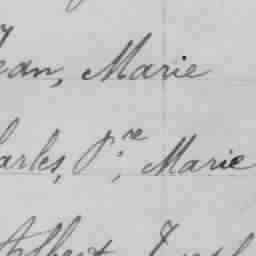 ean, Marie
arles, P.re, Marie
Albert